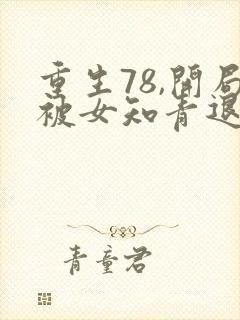 重生78,開局
被女知青退
青童君